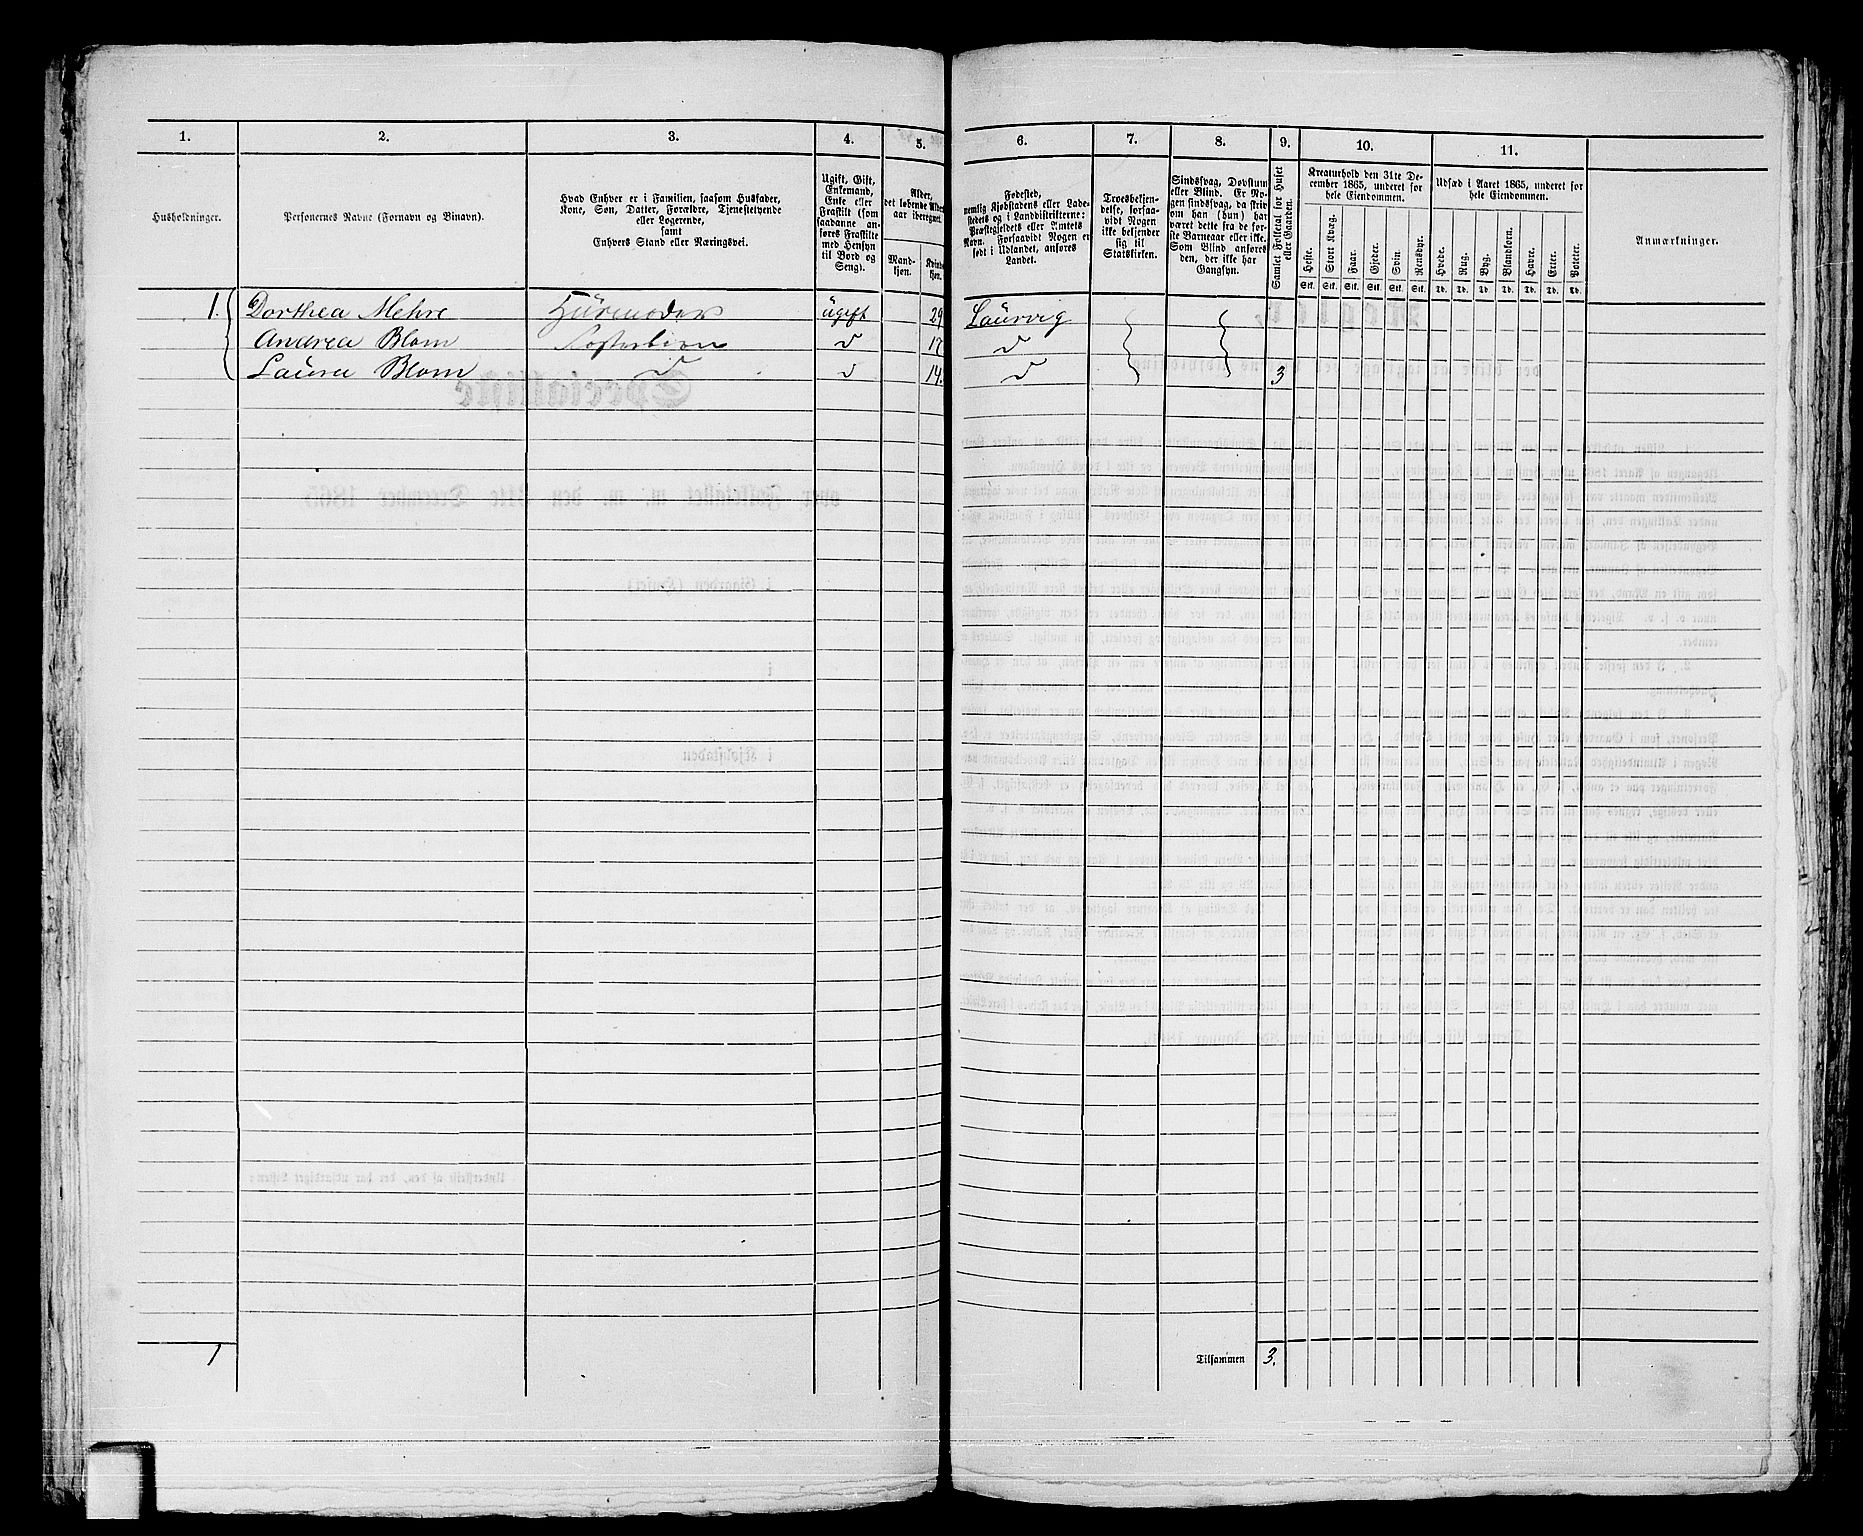 1. 2. 3. 4. 5. 6. 7. 8. 9. 10. 11.
Husholdninger.
Personernes Navne (Fornavn og Binavn).
Hvad Enhver er i Familien, saasom Husfader,
Kone, Søn, Datter, Forældre, Tjenestetyende
eller Logerende,
samt
Enhvers Stand eller Næringsvei.
Ugift, Gift,
Enkemand,
Enke eller
Fraskilt (som
saadanne an-
føres Fraskilte
med Hensyn
til Bord og
Seng).
Alder,
det løbende Alders-
aar iberegnet.
Mand-
kjøn.
Kvinde-
kjøn.
Fødested,
nemlig Kjøbstadens eller Lade-
stedets og i Landdistrikterne:
Præstegjeldets eller Amtets
Navn. Forsaavidt Nogen er
født i Udlandet, anføres
Landet.
Troesbekjen-
delse, forsaa-
vidt Nogen
ikke bekjender
sig til
Statskirken.
Sindssvag, Døvstum
eller Blind. Er No-
gen sindssvag, da skriv
om han (hun) har
været dette fra de før-
ste Barneaar eller ikke.
Som Blind anføres
den, der ikke har
Gangsyn.
Samlet Folketal for Huset
eller Gaarden.
Kreaturhold den 31te De-
cember 1865, underet for
hele Eiendommen.
Heste. Stort Kvæg. Faar. Gjeder. Svin. Rensdyr.
Stk. Stk. Stk. Stk. Stk. Stk.
Udsæd i Aaret 1865, underet for
hele Eiendommen.
Hvede. Rug. Byg. Blandkorn. Havre. Erter. Poteter.
Td. Td. Td. Td. Td. Td. Td.
Anmærkninger.
1. Dorthea Mehre Husmoder ugift 29 Laurvig
Andrea Blom Søsterbørn d 17 d
Laura Blom d d 14. d 3
1 Tilsammen 3.